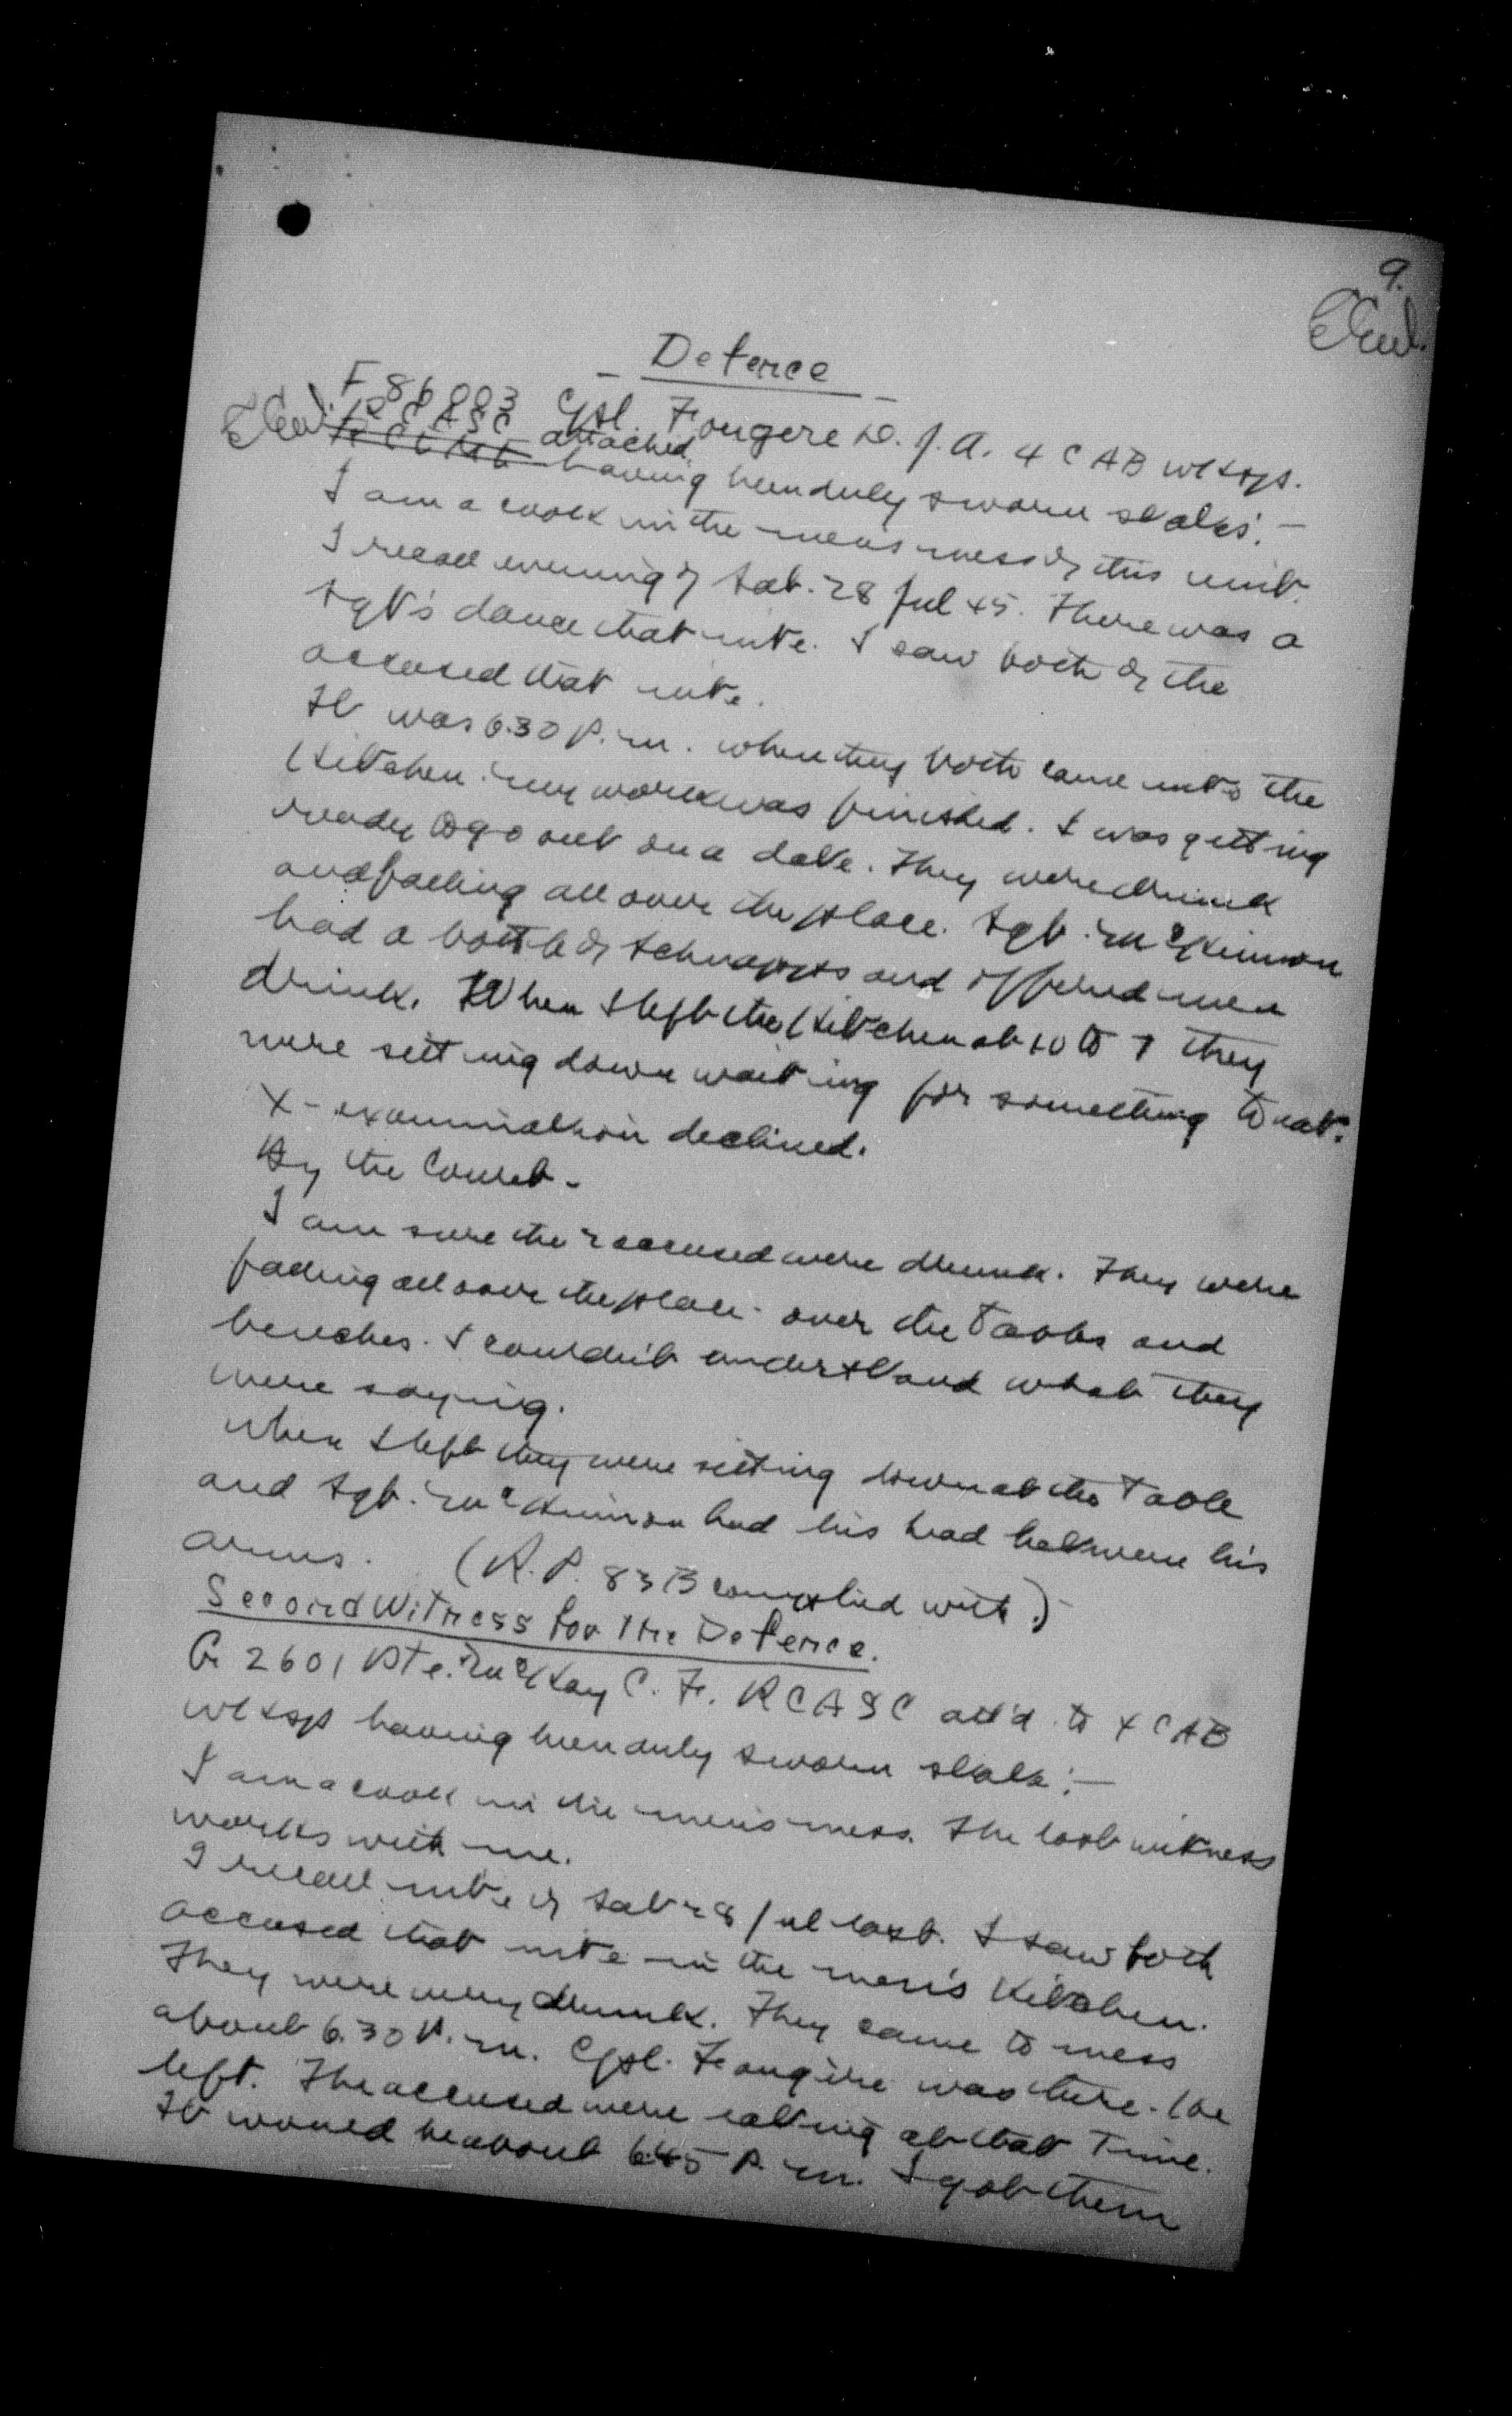 9.
- Defence -
F 86003 Cpl. Fougere D. J. A. 4 CAB wksps.
RCASC attached
having been duly sworn states:-
I am a cook in the men's mess of this unit.
I recall evening of Sat. 28 Jul 45. There was a
Sgt's dance that nite. I saw both of the
accused that nite.
It was 6.30 P.m. when they both came into the
Kitchen. My work was finished. I was getting
ready to go out on a date. They were drunk
and falling all over the place. Sgt. McKinnon
had a bottle of schnapps and offered me a
drink. When I left the Kitchen at 10 to 7 they
were sitting down waiting for something to eat.
X-examination declined.
By the Court-
I am sure the 2 accused were drunk. They were
falling all over the place- over the tables and
benches. I couldn't understand what they
were saying.
When I left they were sitting down at the table
and Sgt. McKinnon had his head between his
arms. (R.P. 83B complied with.)
Second Witness for the Defence.
G 2601 Pte. McKay C. F. RCASC att'd to 4 CAB
wksps having been duly sworn states:-
I am a cook in the men's mess. The last witness
works with me.
I recall nite of Sat 28 Jul last. I saw both
accused that nite in the men's Kitchen.
They were very drunk. They came to mess
about 6.30 P.m. Cpl. Fougere was there. He
left. The accused were eating at that time.
It would be about 6.45 P.m. I got them